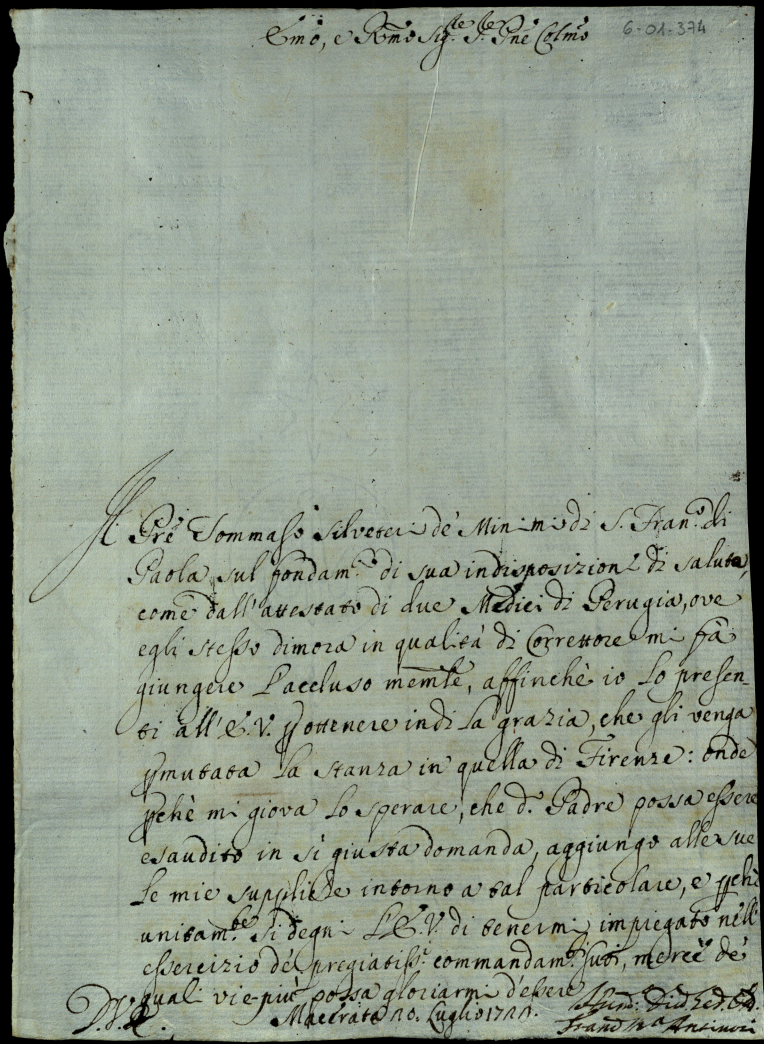 Emo, e Rmo Sig.re Sig.re Pne Colmo
6-01-374
Il Pre Tommaso Silveteri de' Minimi di S. Fran.co di
Paola sul fondam.to di sua indisposizione di salute,
come dall'attestato di due Medici di Perugia, ove
egli stesso dimora in qualità di Correttore mi fà
giungere l'accluso memle, affinchè io lo presen-
ti all'E.V. p ottenere indi la grazia, che gli venga
pmutata la stanza in quella di Firenze: onde
pchè mi giova lo sperare, che d.o Padre possa essere
esaudito in sì giusta domanda, aggiungo alle sue
le mie suppliche intorno a tal particolare, e pchè
unitam.te si degni l'E.V. di tenermi impiegato nell'
essercizio de' pregiatiss.i commandam.ti suoi, mercè de'
quali vie più possa gloriarmi d'essere
D.V.E.
Macerata 20. Luglio